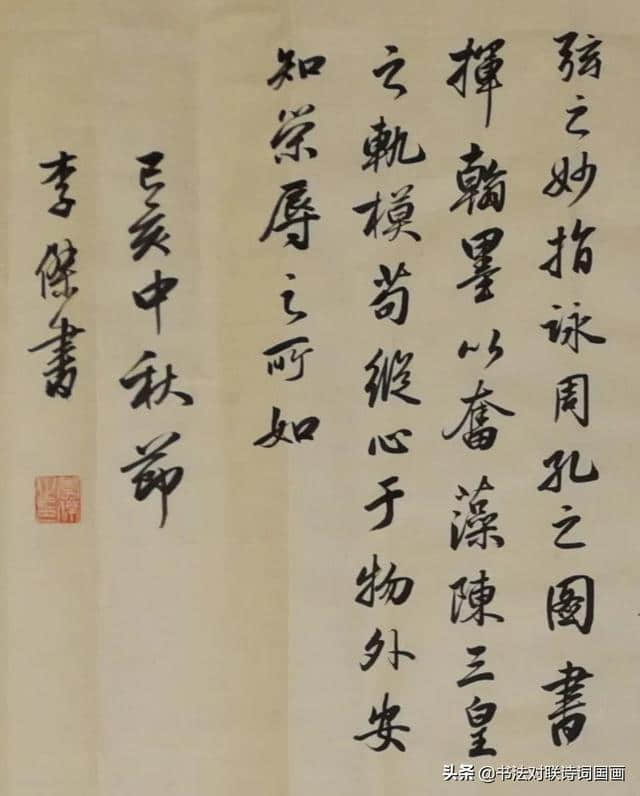 弦之妙指詠周孔之圖書
揮翰墨以奮藻陳三皇
之軌模苟縱心于物外安
知榮辱之所如
己亥中秋節
李傑書
头条 @书法对联诗词国画